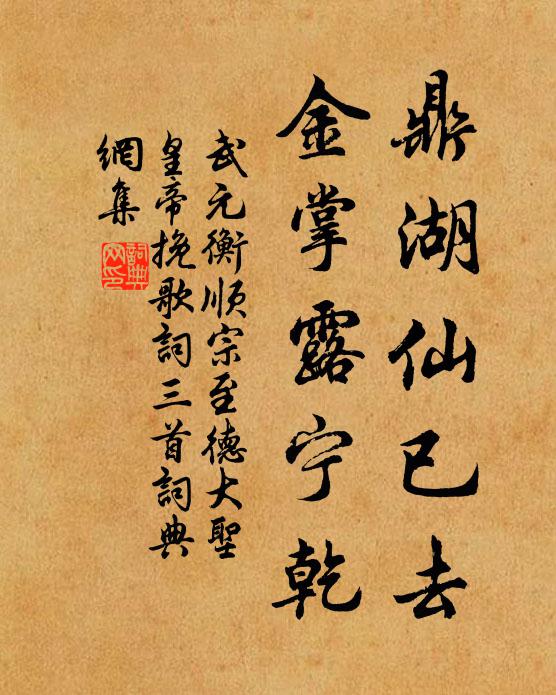 鼎湖仙已去
金掌露宁乾
武元衡顺宗至德大聖
皇帝挽歌詞三首詞典
網集
詞典
网